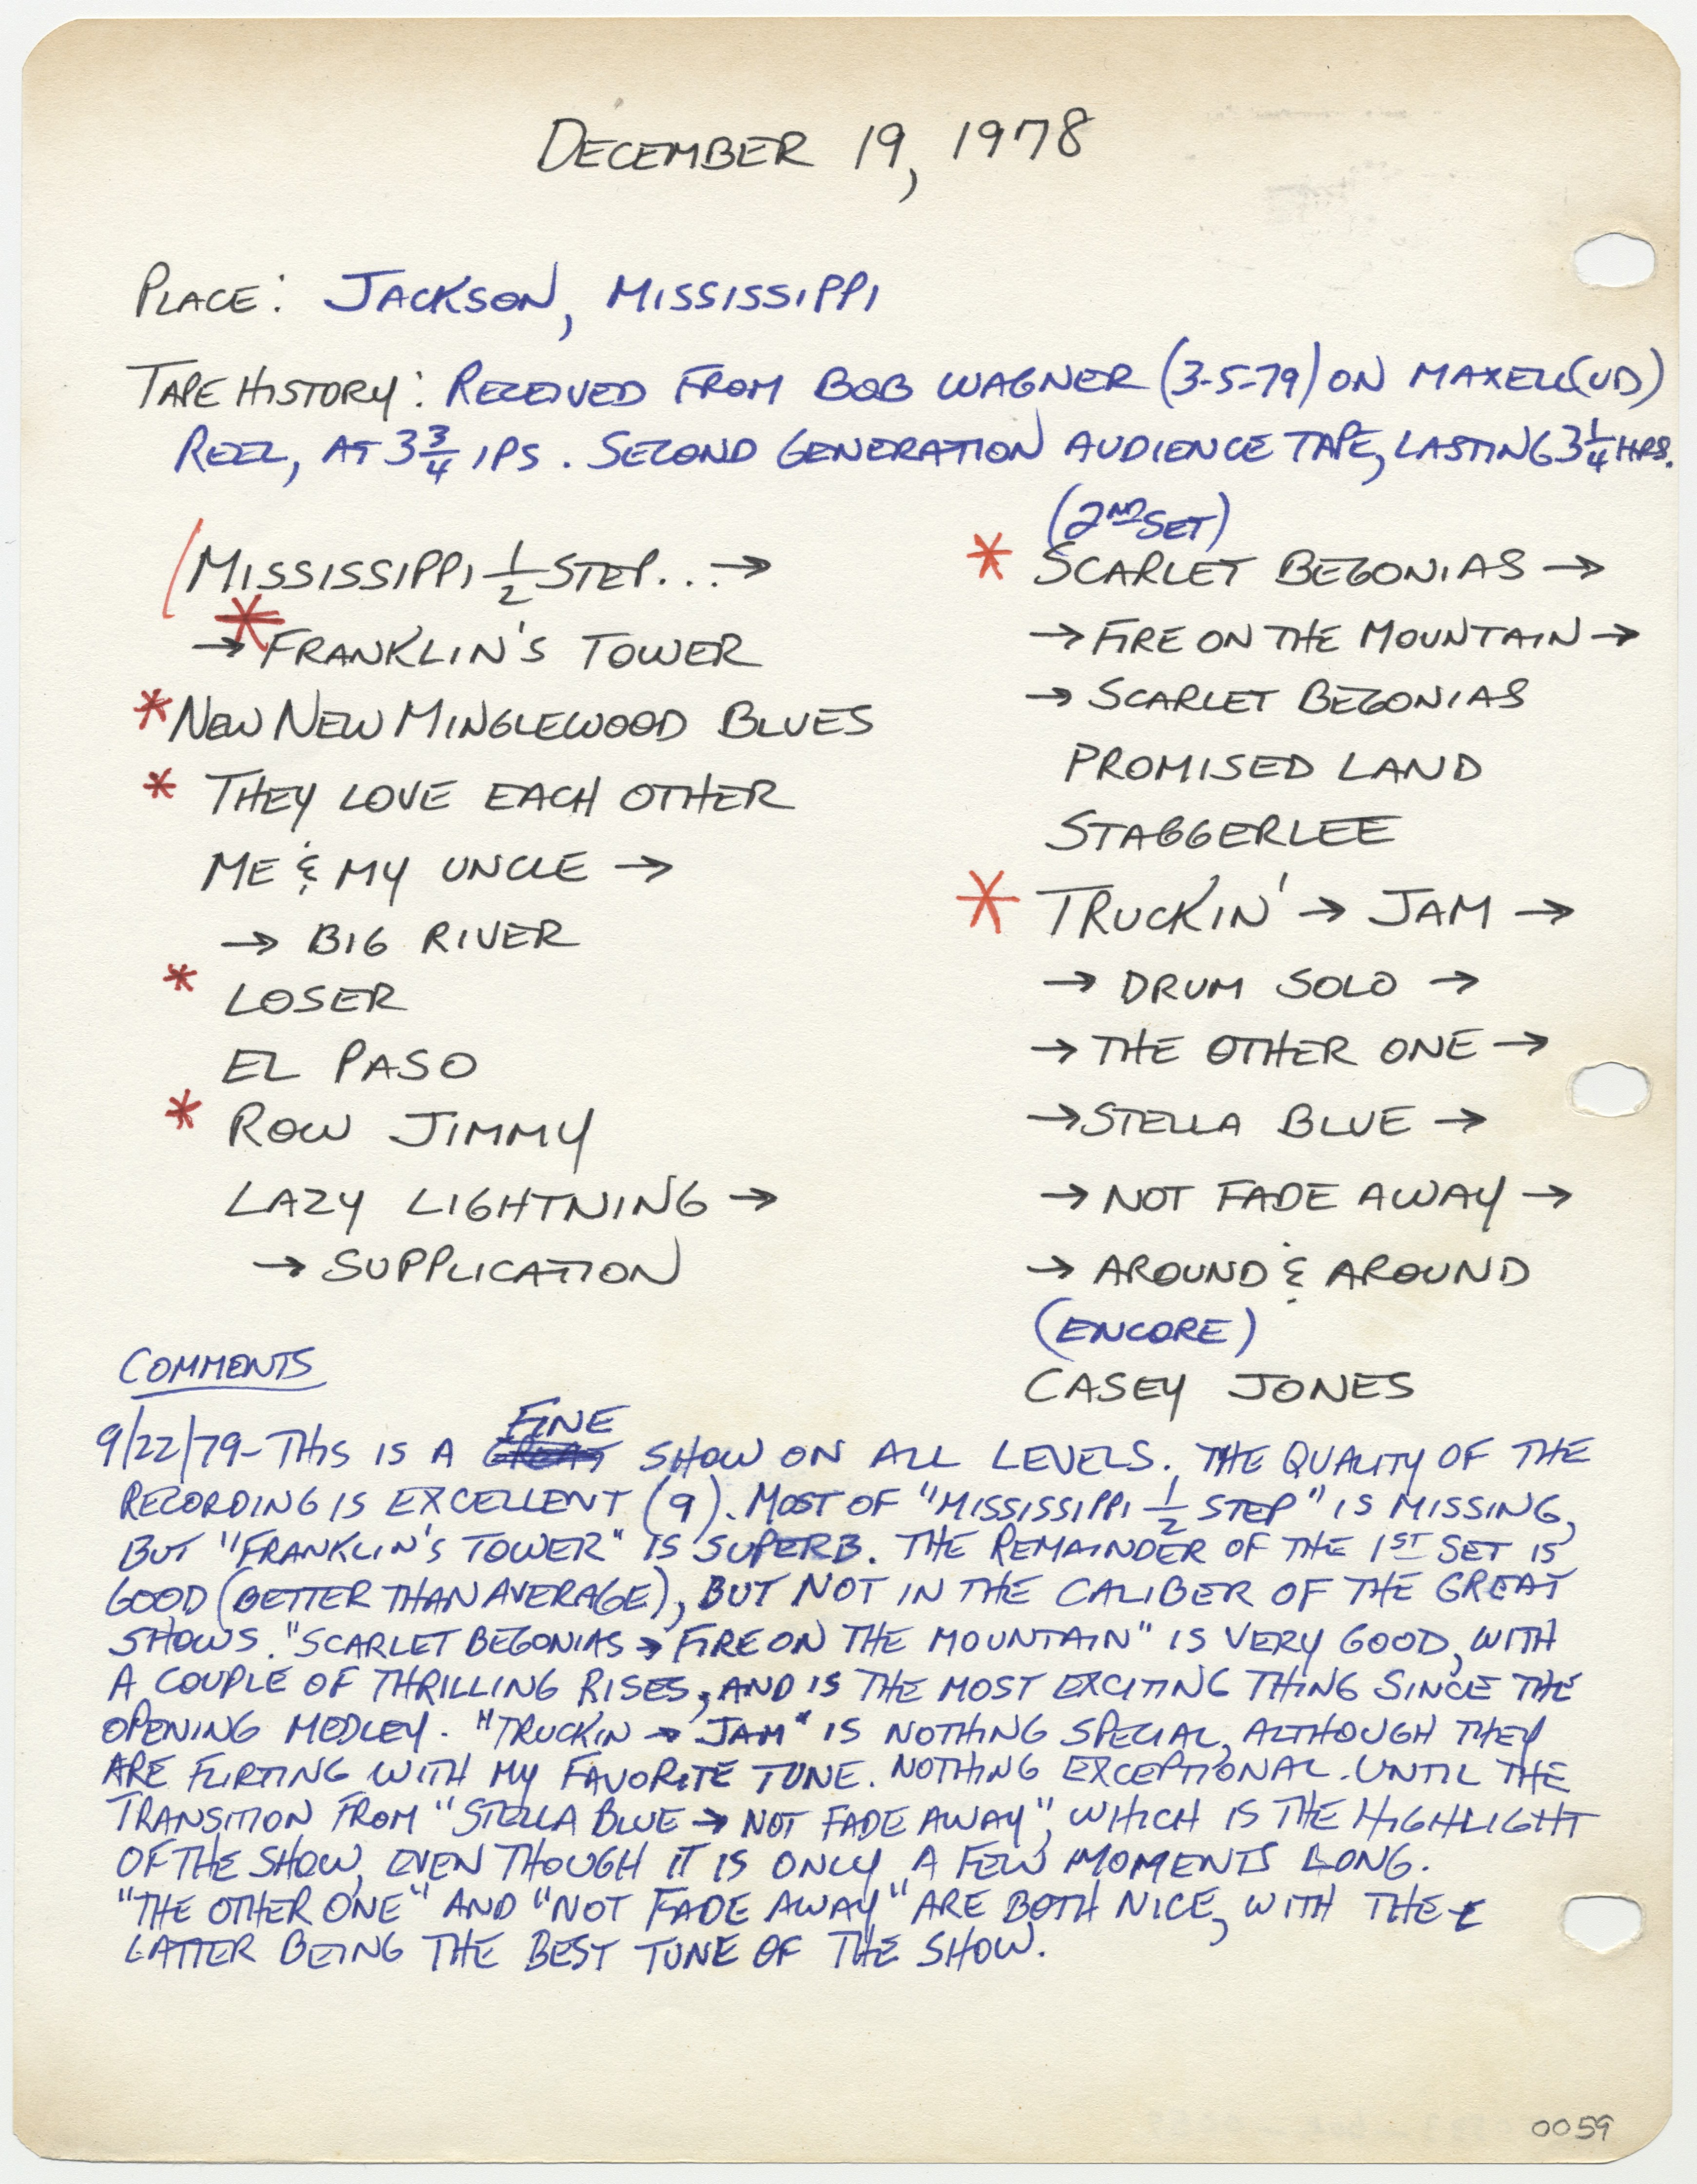 DECEMBER 19, 1978
PLACE: JACKSON, MISSISSIPPI
TAPE HISTORY: RECEIVED FROM BOB WAGNER (3-5-79) ON MAXELL (UD)
REEL, AT 3 3/4 IPS. SECOND GENERATION AUDIENCE TAPE, LASTING 3 1/4 HRS.
(MISSISSIPPI 1/2 STEP...→
* → FRANKLIN'S TOWER
* NEW NEW MINGLEWOOD BLUES
* THEY LOVE EACH OTHER
ME & MY UNCLE →
→ BIG RIVER
* LOSER
EL PASO
* ROW JIMMY
LAZY LIGHTNING →
→ SUPPLICATION
(2ND SET)
* SCARLET BEGONIAS →
→ FIRE ON THE MOUNTAIN →
→ SCARLET BEGONIAS
PROMISED LAND
STAGGERLEE
* TRUCKIN' → JAM →
→ DRUM SOLO →
→ THE OTHER ONE →
→ STELLA BLUE →
→ NOT FADE AWAY →
→ AROUND & AROUND
(ENCORE)
CASEY JONES
COMMENTS
9/22/79 - THIS IS A FINE SHOW ON ALL LEVELS. THE QUALITY OF THE
RECORDING IS EXCELLENT (9). MOST OF "MISSISSIPPI 1/2 STEP" IS MISSING,
BUT "FRANKLIN'S TOWER" IS SUPERB. THE REMAINDER OF THE 1ST SET IS
GOOD (BETTER THAN AVERAGE), BUT NOT IN THE CALIBER OF THE GREAT
SHOWS. "SCARLET BEGONIAS → FIRE ON THE MOUNTAIN" IS VERY GOOD, WITH
A COUPLE OF THRILLING RISES, AND IS THE MOST EXCITING THING SINCE THE
OPENING MEDLEY. "TRUCKIN → JAM" IS NOTHING SPECIAL, ALTHOUGH THEY
ARE FLIRTING WITH MY FAVORITE TUNE. NOTHING EXCEPTIONAL. UNTIL THE
TRANSITION FROM "STELLA BLUE → NOT FADE AWAY", WHICH IS THE HIGHLIGHT
OF THE SHOW, EVEN THOUGH IT IS ONLY A FEW MOMENTS LONG.
"THE OTHER ONE" AND "NOT FADE AWAY" ARE BOTH NICE, WITH THE
LATTER BEING THE BEST TUNE OF THE SHOW.
0059